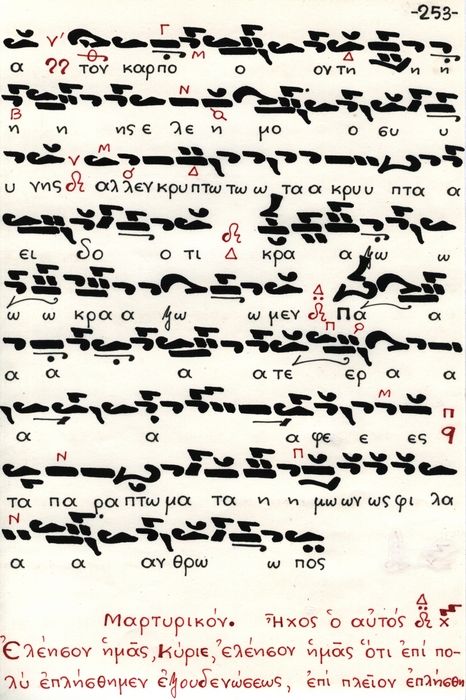 -253-
α τον καρπο ο ον τη η η
η η ης ε λε η μο ο συ υ
υ νης αλλ εν κρυπτω τω ω τα α κρυ υ πτα α
ει δο ο τι κρα α γω ω
ω ω κρα α γω ω μεν Πα α
α α α α τε ερ α α
α α α φε ε ες
τα πα ρα πτω μα τα η η μω ων ως φι λα
α α αν θρω ω πος
Μαρτυρικόν. Ἦχος ὁ αὐτός
Ἐλέησον ἡμᾶς, Κύριε, ἐλέησον ἡμᾶς ὅτι ἐπί πο-
λύ ἐπλήσθημεν ἐξουδενώσεως, ἐπί πλεῖον ἐπλήσθη